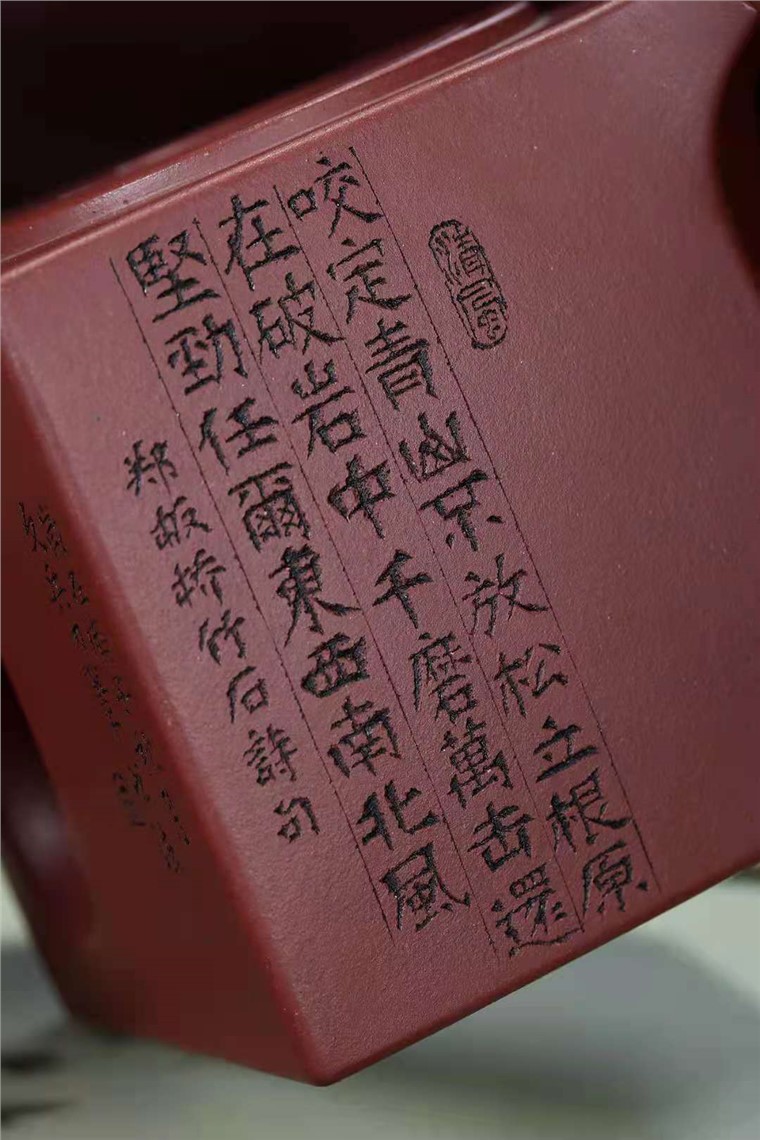 咬定青山不放松立根原
在破岩中千磨萬击還
堅勁任爾東西南北風
郑板桥竹石詩句